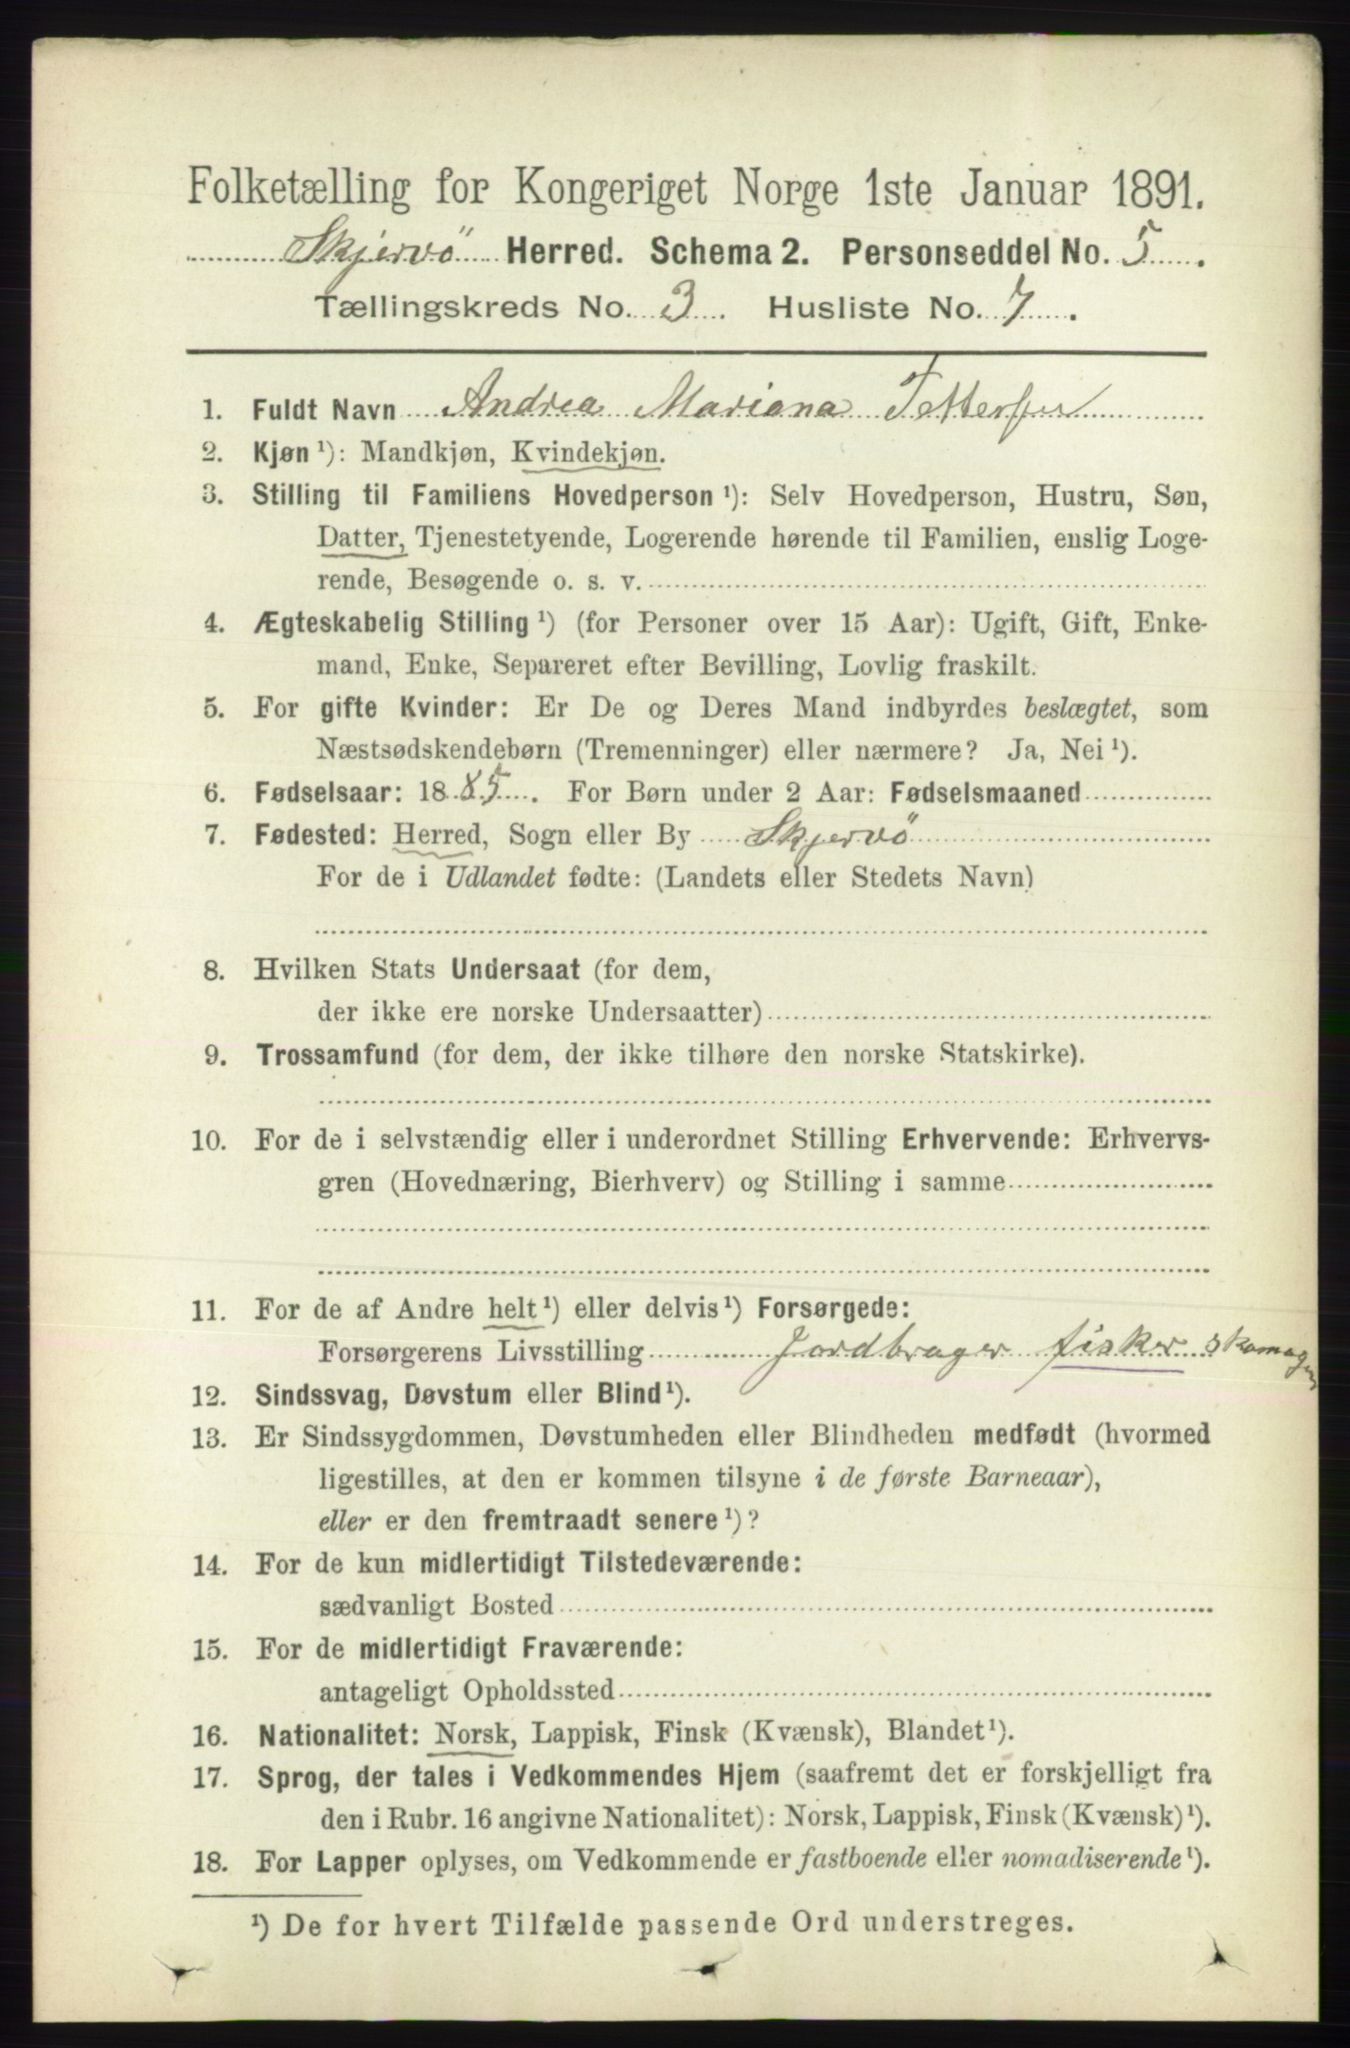 Folketælling for Kongeriget Norge 1ste Januar 1891.
Skjervö Herred. Schema 2. Personseddel No. 5.
Tællingskreds No. 3. Husliste No. 7.
1. Fuldt Navn Andrea Mariana
2. Kjøn ¹): Mandkjøn, Kvindekjøn.
3. Stilling til Familiens Hovedperson ¹): Selv Hovedperson, Hustru, Søn,
Datter, Tjenestetyende, Logerende hørende til Familien, enslig Loge-
rende, Besøgende o. s. v.
4. Ægteskabelig Stilling ¹) (for Personer over 15 Aar): Ugift, Gift, Enke-
mand, Enke, Separeret efter Bevilling, Lovlig fraskilt.
5. For gifte Kvinder: Er De og Deres Mand indbyrdes beslægtet, som
Næstsødskendebørn (Tremenninger) eller nærmere? Ja, Nei ¹).
6. Fødselsaar: 1885. For Børn under 2 Aar: Fødselsmaaned
7. Fødested: Herred, Sogn eller By Skjervö
For de i Udlandet fødte: (Landets eller Stedets Navn)
8. Hvilken Stats Undersaat (for dem,
der ikke ere norske Undersaatter)
9. Trossamfund (for dem, der ikke tilhøre den norske Statskirke).
10. For de i selvstændig eller i underordnet Stilling Erhvervende: Erhvervs-
gren (Hovednæring, Bierhverv) og Stilling i samme
11. For de af Andre helt ¹) eller delvis ¹) Forsørgede:
Forsørgerens Livsstilling Jordbruger fisker skomager
12. Sindssvag, Døvstum eller Blind ¹).
13. Er Sindssygdommen, Døvstumheden eller Blindheden medfødt (hvormed
ligestilles, at den er kommen tilsyne i de første Barneaar),
eller er den fremtraadt senere ¹)?
14. For de kun midlertidigt Tilstedeværende:
sædvanligt Bosted
15. For de midlertidigt Fraværende:
antageligt Opholdssted
16. Nationalitet: Norsk, Lappisk, Finsk (Kvænsk), Blandet ¹).
17. Sprog, der tales i Vedkommendes Hjem (saafremt det er forskjelligt fra
den i Rubr. 16 angivne Nationalitet): Norsk, Lappisk, Finsk (Kvænsk) ¹).
18. For Lapper oplyses, om Vedkommende er fastboende eller nomadiserende ¹).
¹) De for hvert Tilfælde passende Ord understreges.